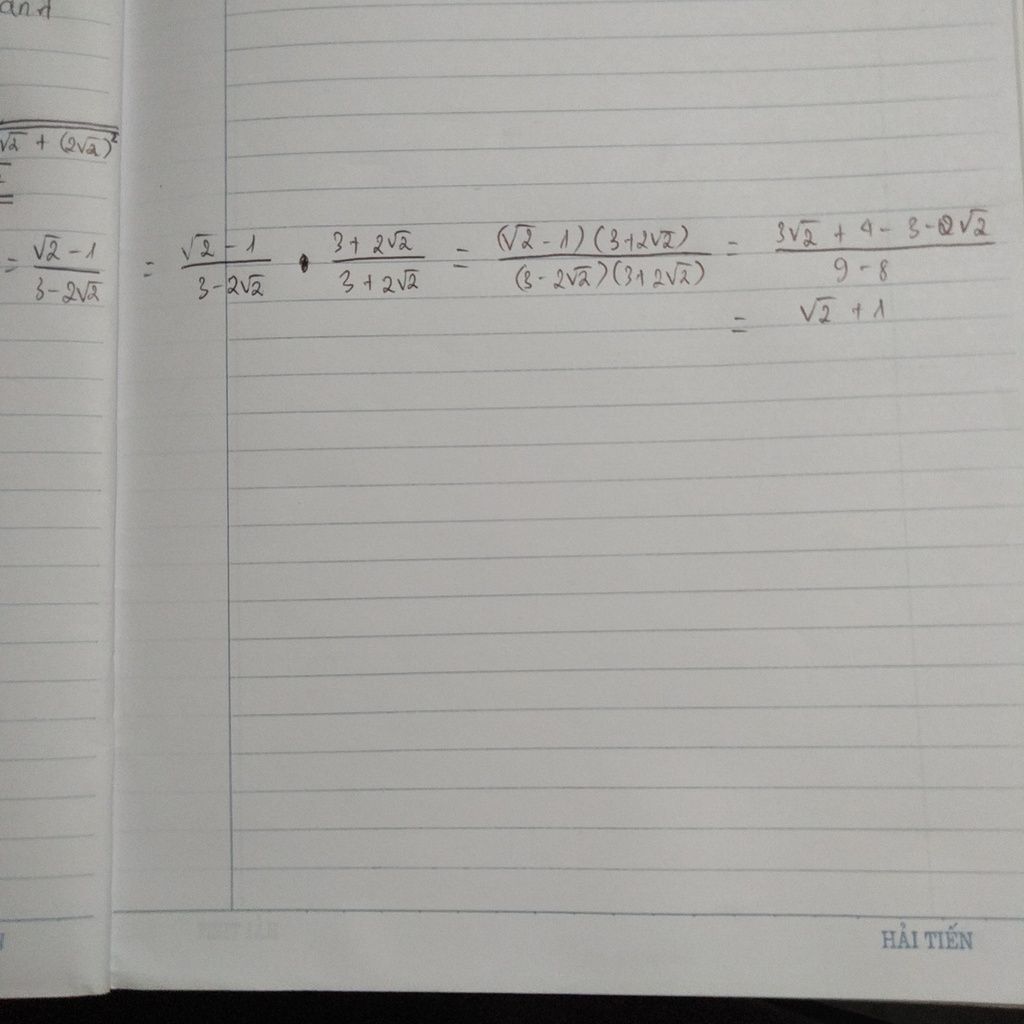 and
√2 + (2√2)²
= (√2 - 1)/(3 - 2√2) = (√2 - 1)/(3 - 2√2) • (3 + 2√2)/(3 + 2√2) = ((√2 - 1)(3 + 2√2))/((3 - 2√2)(3 + 2√2)) = (3√2 + 4 - 3 - 2√2)/(9 - 8)
= √2 + 1
HẢI TIẾN